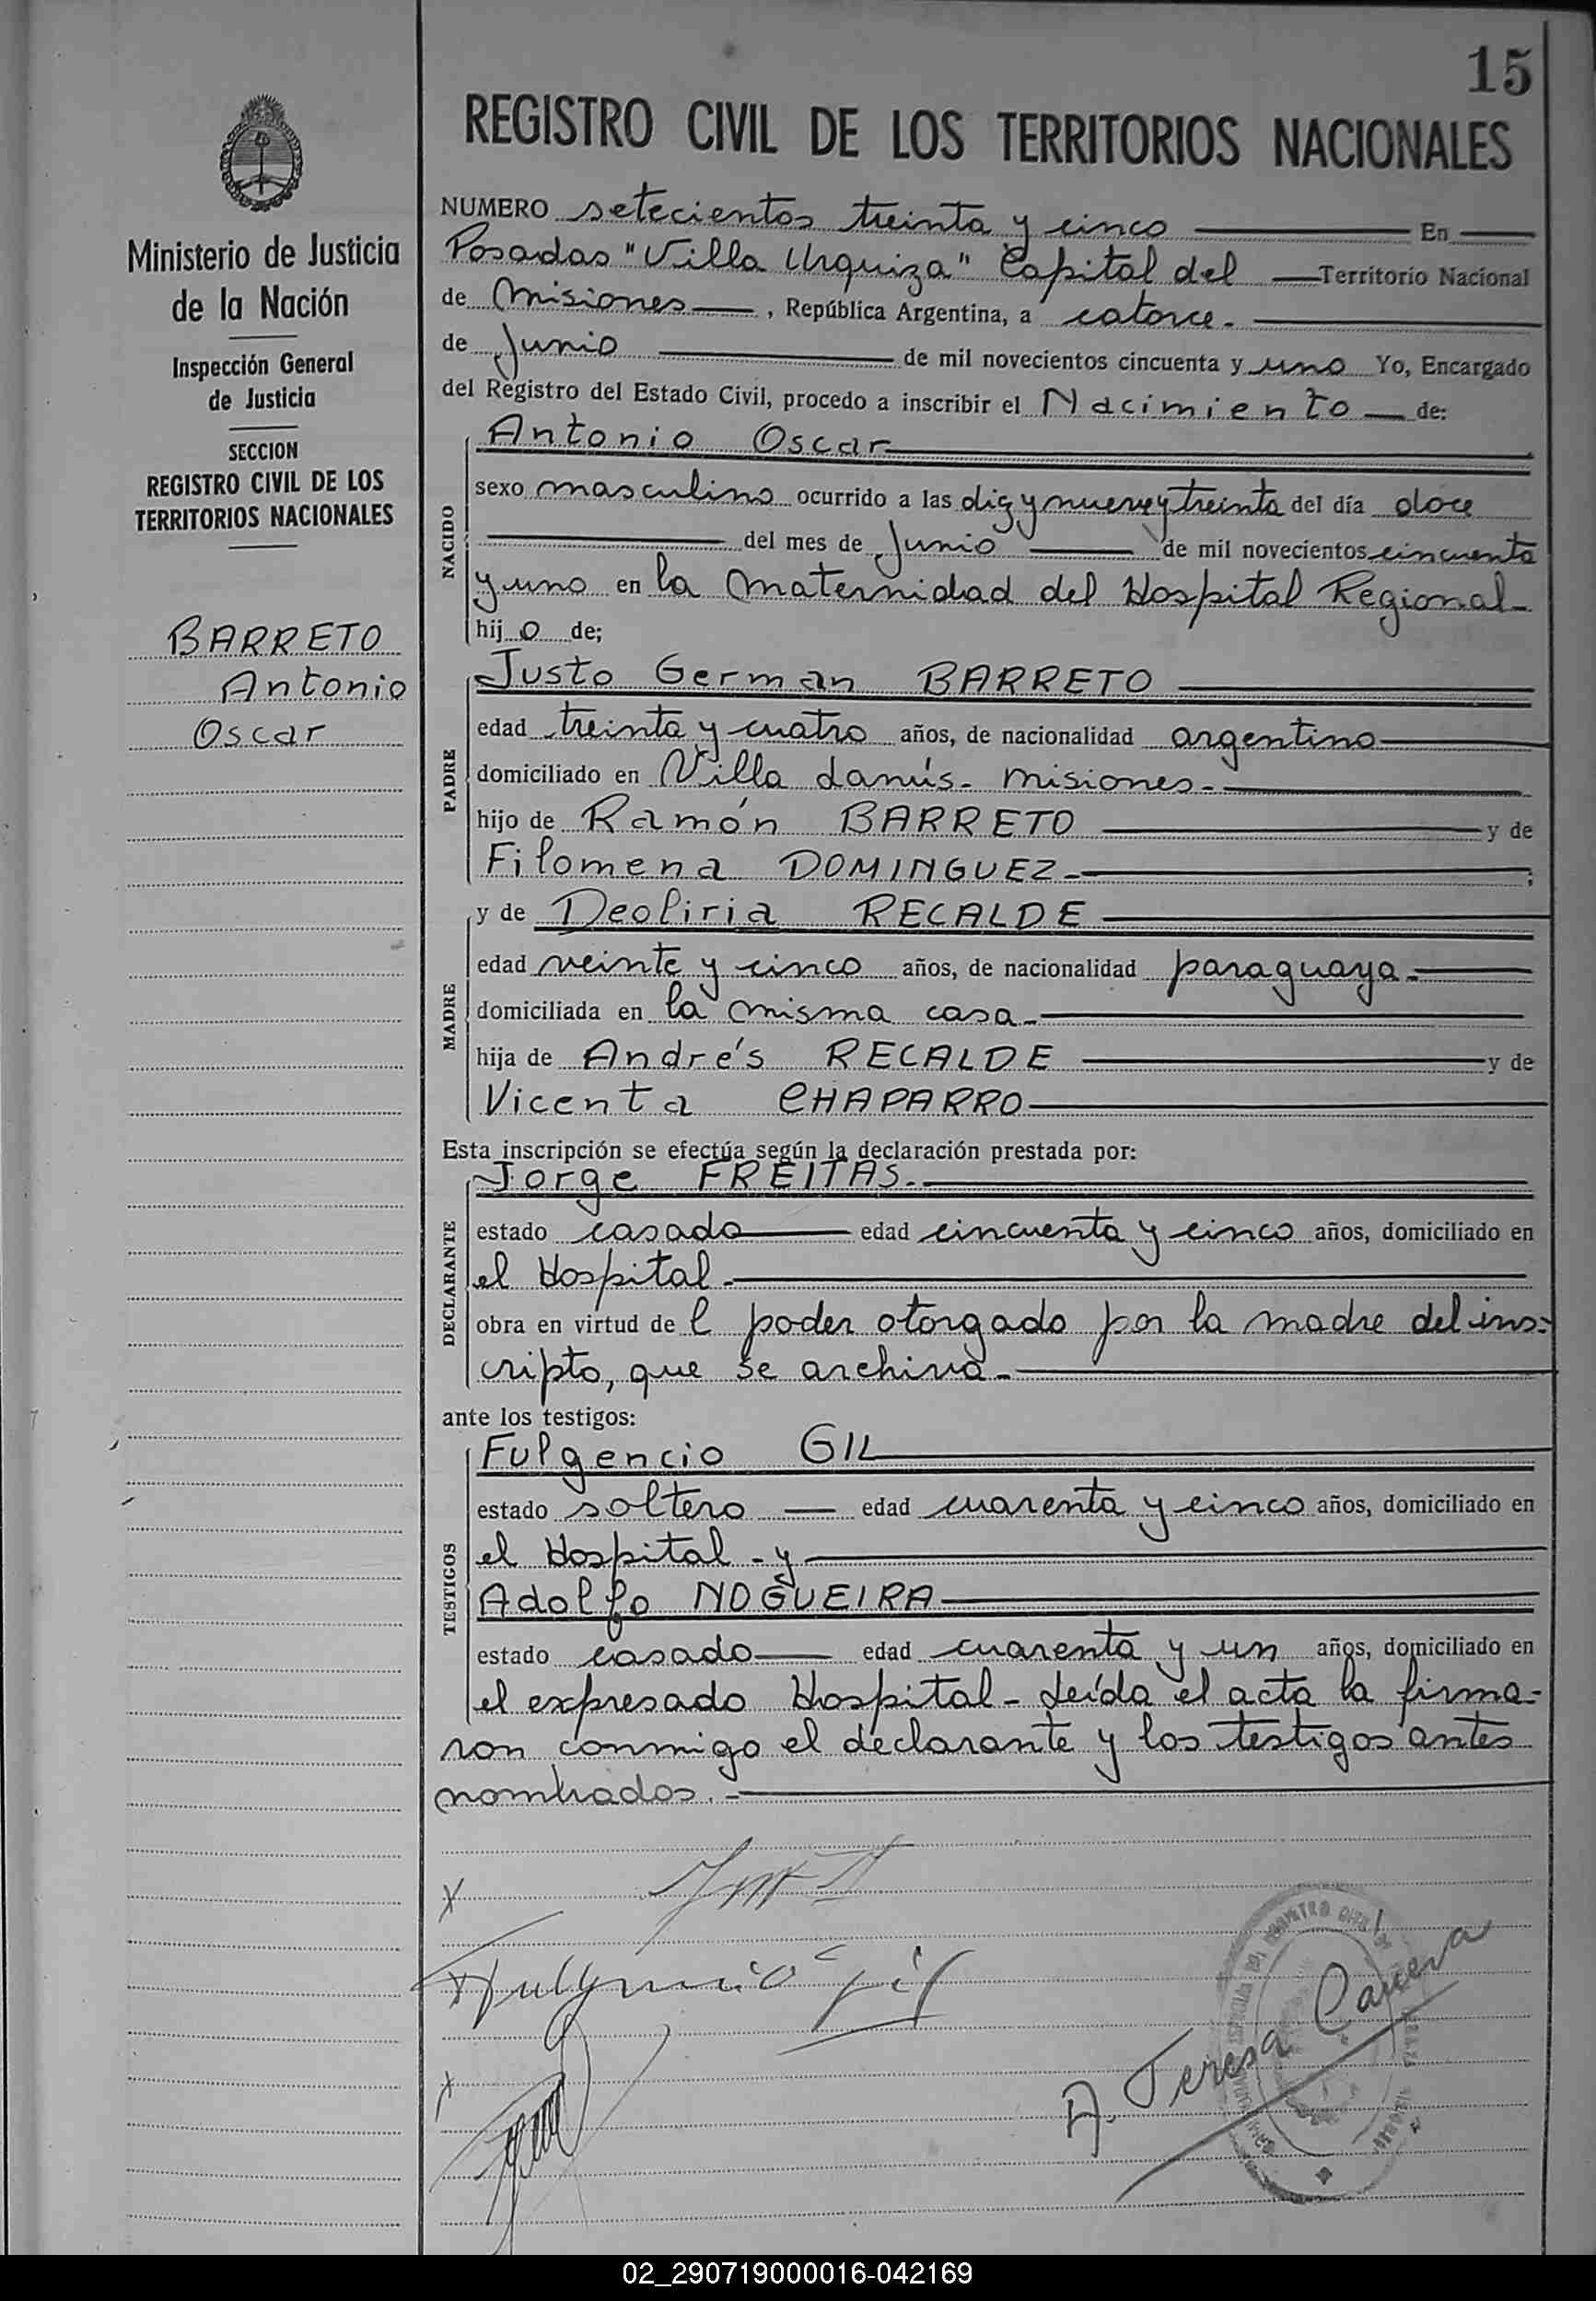 15
REGISTRO CIVIL DE LOS TERRITORIOS NACIONALES
Ministerio de Justicia
de la Nación
Inspección General
de Justicia
SECCION
REGISTRO CIVIL DE LOS
TERRITORIOS NACIONALES
BARRETO
Antonio
Oscar
NUMERO setecientos treinta y cinco En
Posadas "Villa Urquiza" Capital del Territorio Nacional
de Misiones, República Argentina, a catorce.
de Junio de mil novecientos cincuenta y uno Yo, Encargado
del Registro del Estado Civil, procedo a inscribir el Nacimiento de:
Antonio Oscar
NACIDO
sexo masculino ocurrido a las diez y nueve y treinta del día doce
del mes de Junio de mil novecientos cincuenta
y uno en la Maternidad del Hospital Regional-
hijo de;
Justo German BARRETO
PADRE
edad treinta y cuatro años, de nacionalidad argentino
domiciliado en Villa Lanús- Misiones-
hijo de Ramón BARRETO y de
Filomena DOMINGUEZ- ;
y de Deoliria RECALDE
MADRE
edad veinte y cinco años, de nacionalidad paraguaya-
domiciliada en la misma casa-
hija de Andrés RECALDE y de
Vicenta CHAPARRO
Esta inscripción se efectúa según la declaración prestada por:
Jorge FREITAS.
DECLARANTE
estado casado edad cincuenta y cinco años, domiciliado en
el Hospital-
obra en virtud de l poder otorgado por la madre del ins-
cripto, que se archiva-
ante los testigos:
Fulgencio GIL
TESTIGOS
estado soltero edad cuarenta y cinco años, domiciliado en
el Hospital - y
Adolfo NOGUEIRA
estado casado edad cuarenta y un años, domiciliado en
el expresado Hospital- Leída el acta la firma-
ron conmigo el declarante y los testigos antes
nombrados.-
X
X Fulgencio Gil
X
A. Teresa
02_290719000016-042169